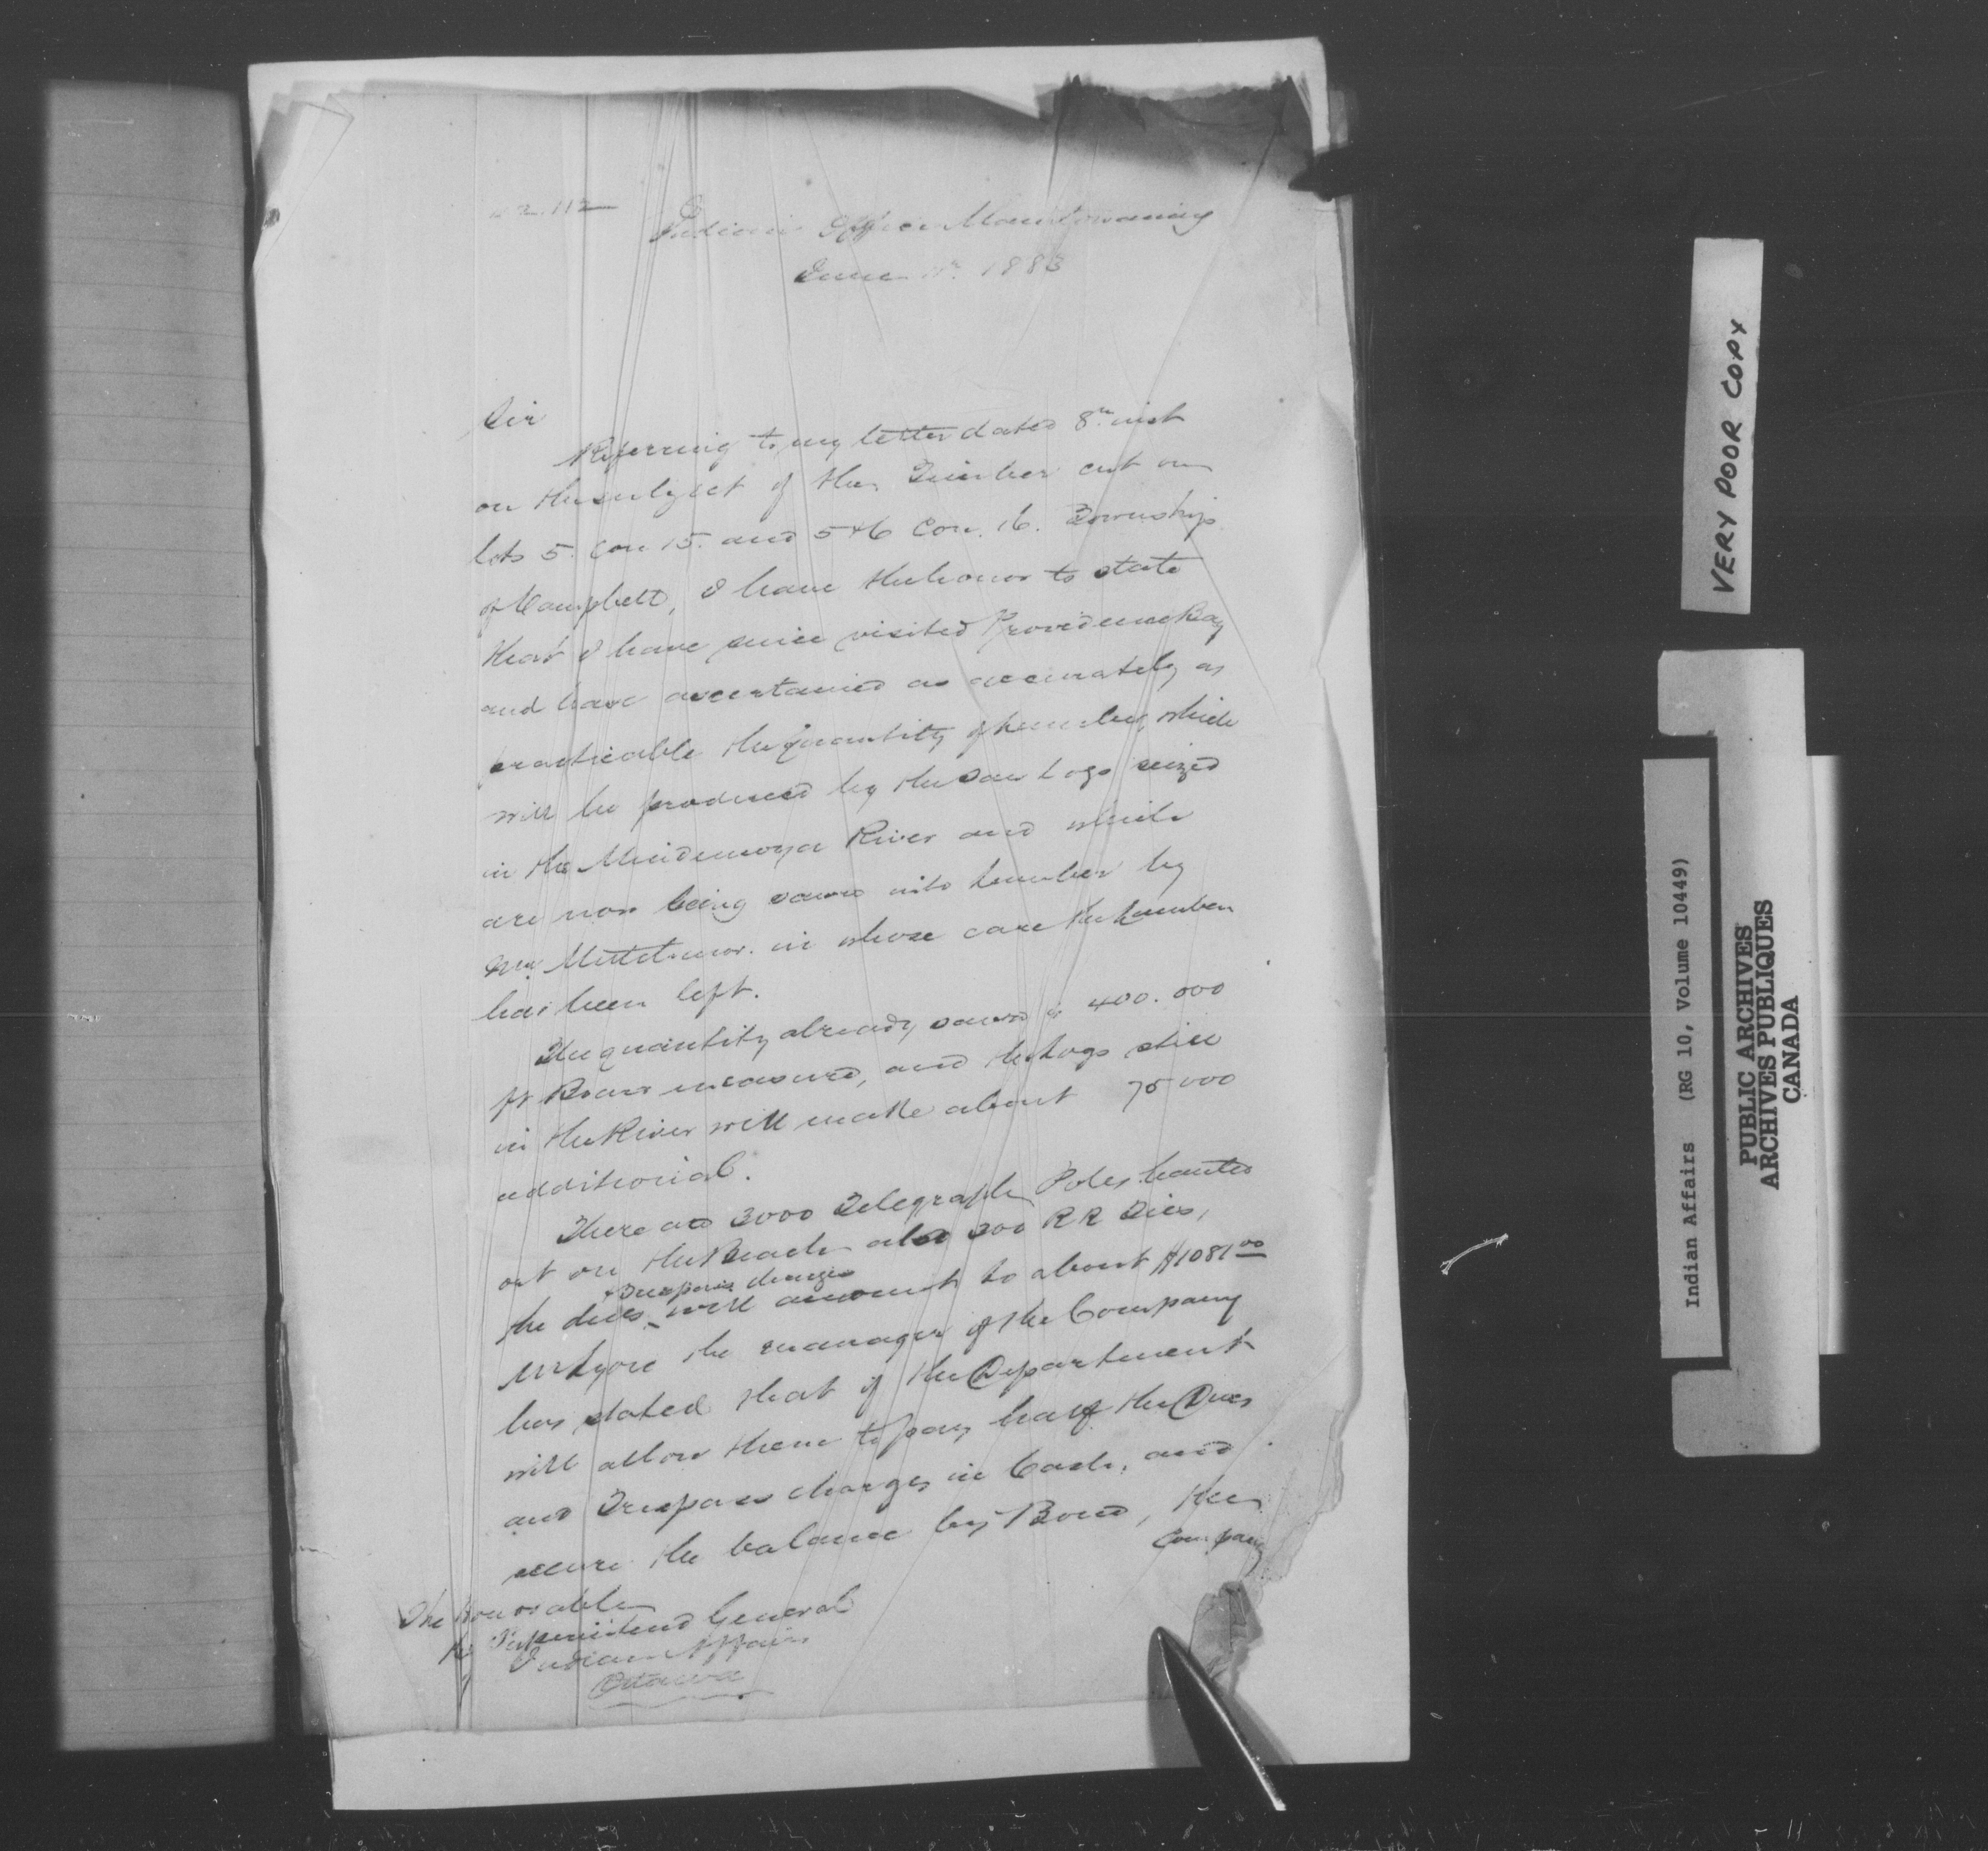 Indian Office Manitowaning
June 1883
Sir
Referring to my letter dated 8th inst
on the subject of the Timber cut on
lots 5. Con 15. and 5 & 6 Con. 16. Township
of Campbell, I have the honor to state
that I have since visited Providence Bay
and have ascertained as accurately as
practicable the quantity of lumber, which
will be produced by the Saw Logs seized
in the Mindemoya River and which
are now being sawn into lumber by
Mr. in whose care the Lumber
has been left.
The quantity already sawn is 400.000
ft Board measure, and the Logs still
in the River will make about 75000
additional.
There are 3000 Telegraph Poles hauled
out on the Beach also 300 RR Ties,
& Trespass charges
the dues will amount to about $1081 00
Mr Lyon the manager of the Company
has stated that if the Department
will allow them to pay half the Dues
and Trespass charges in Cash, and
secure the balance by Bond, the
Company
The Honorable
The Superintend General
of Indian Affairs
Ottawa
VERY POOR COPY
Indian Affairs (RG 10, Volume 10449)
PUBLIC ARCHIVES
ARCHIVES PUBLIQUES
CANADA